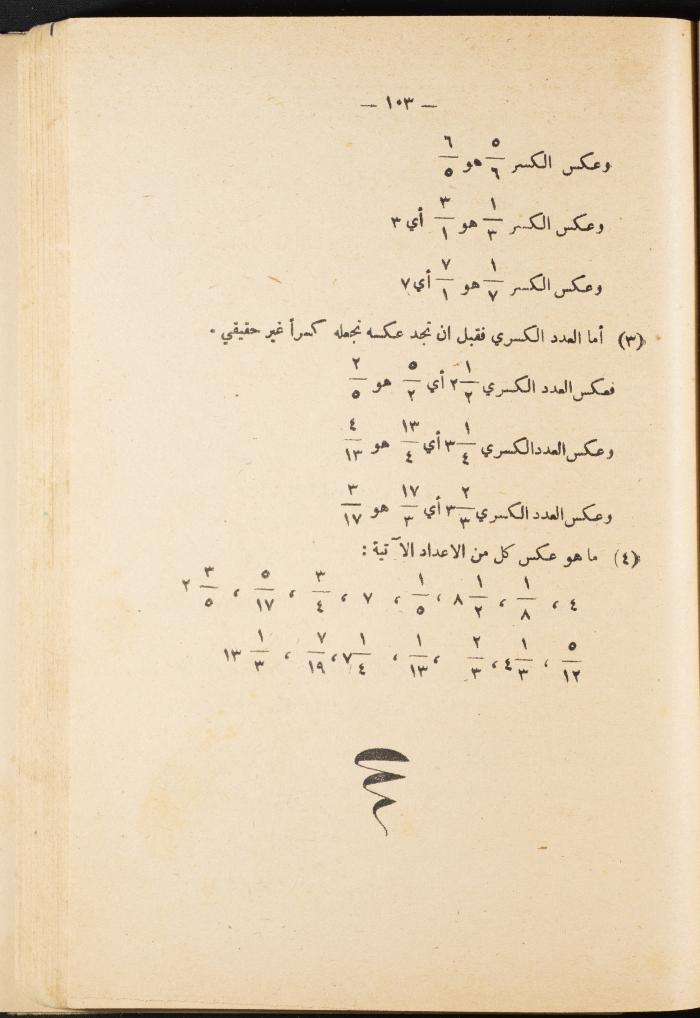 — ١٠٣ —
وعكس الكسر ٥/٦ هو ٦/٥
وعكس الكسر ١/٣ هو ٣/١ أي ٣
وعكس الكسر ١/٧ هو ٧/١ أي ٧
(٣) أما العدد الكسري فقبل ان نجد عكسه نجعله كسراً غير حقيقي .
فعكس العدد الكسري ٢ ١/٢ أي ٥/٢ هو ٢/٥
وعكس العدد الكسري ٣ ١/٤ أي ١٣/٤ هو ٤/١٣
وعكس العدد الكسري ٣ ٢/٣ أي ١٧/٣ هو ٣/١٧
(٤) ما هو عكس كل من الاعداد الآتية :
٤ ، ١/٨ ، ٨ ١/٢ ، ١/٥ ، ٧ ، ٣/٤ ، ٥/١٧ ، ٢ ٣/٥
٥/١٢ ، ٤ ١/٣ ، ٢/٣ ، ١/١٣ ، ٧ ١/٤ ، ٧/١٩ ، ١٣ ١/٣